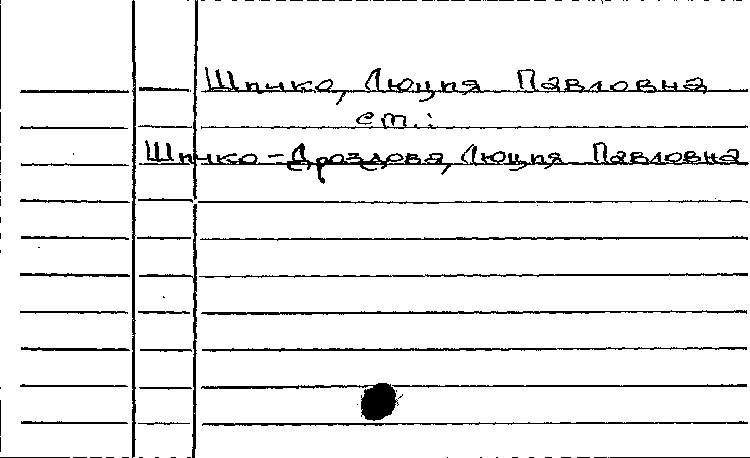 Шпичко, Люция Павловна
ст.:
Шпичко-Дроздова, Люция Павловна